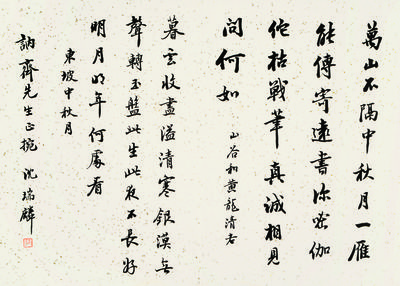 萬山不隔中秋月一雁
能傳寄遠書深密伽
佗枯戰筆真誠相見
問何如
山谷和黄龍清老
暮雲收盡溢清寒銀漢無
聲轉玉盤此生此夜不長好
明月明年何處看
東坡中秋月
訥齊先生正 沈瑞麟